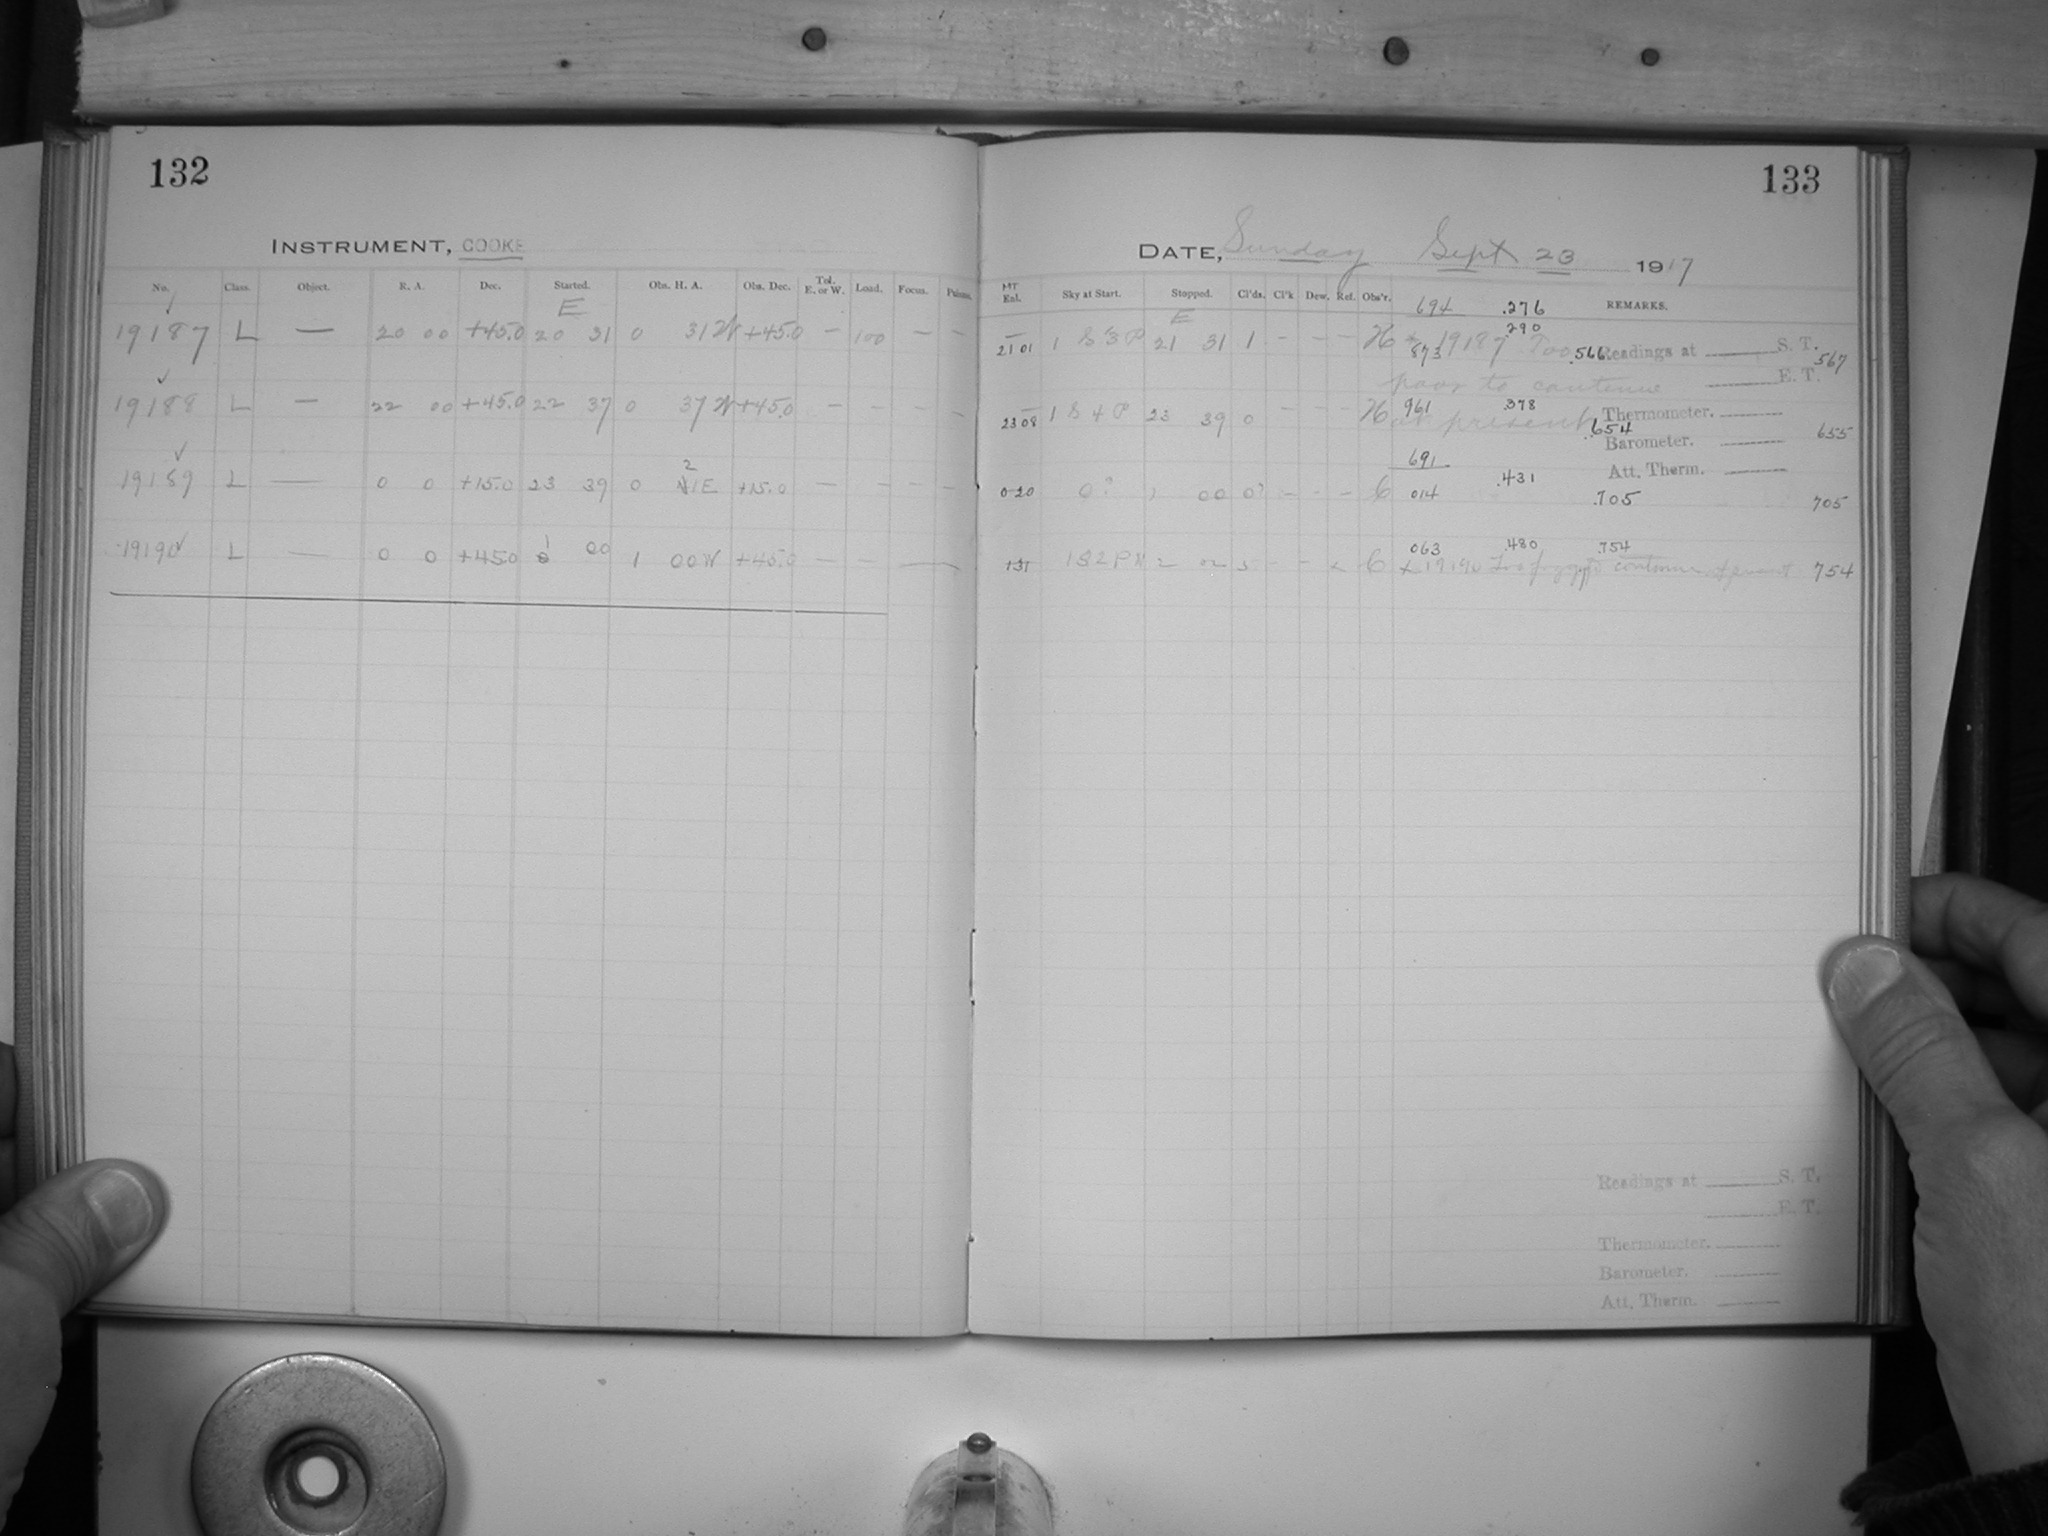 132
INSTRUMENT, COOKE
No. Class. Object. R. A. Dec. Started. Obs. H. A. Obs. Dec. Tel. E. or W. Load. Focus.
E
19187 L — 20 00 +45.0 20 31 0 31 W +45.0 — 100 — —
19188 L — 22 00 +45.0 22 37 0 37 W +45.0 — — — —
2
19189 L — 0 0 +15.0 23 39 0 1E +15.0 — — — —
1
19190 L — 0 0 +45.0 00 1 00 W +45.0 — —
133
DATE, Sunday Sept 23 1917
MT
Enl. Sky at Start. Stopped. Cl'ds. Cl'k Dew. Ref. Obs'r. REMARKS.
694 .276
E .290
21 01 1 S 3 P 21 31 1 — — — H * 19187 Too
873 .566 Readings at S. T. 567
poor to continue E. T.
961 .378 Thermometer.
23 08 1 S 4 P 23 39 0 — — — H at present .654 655
Barometer.
691 Att. Therm.
0 20 0? 1 00 0? — — — C 014 .431 .705 705
063 .480 .754
1 31 1 S 2 P 2 02 5 — — C 19190 Too foggy to continue at present 754
Readings at S. T.
E. T.
Thermometer.
Barometer.
Att. Therm.